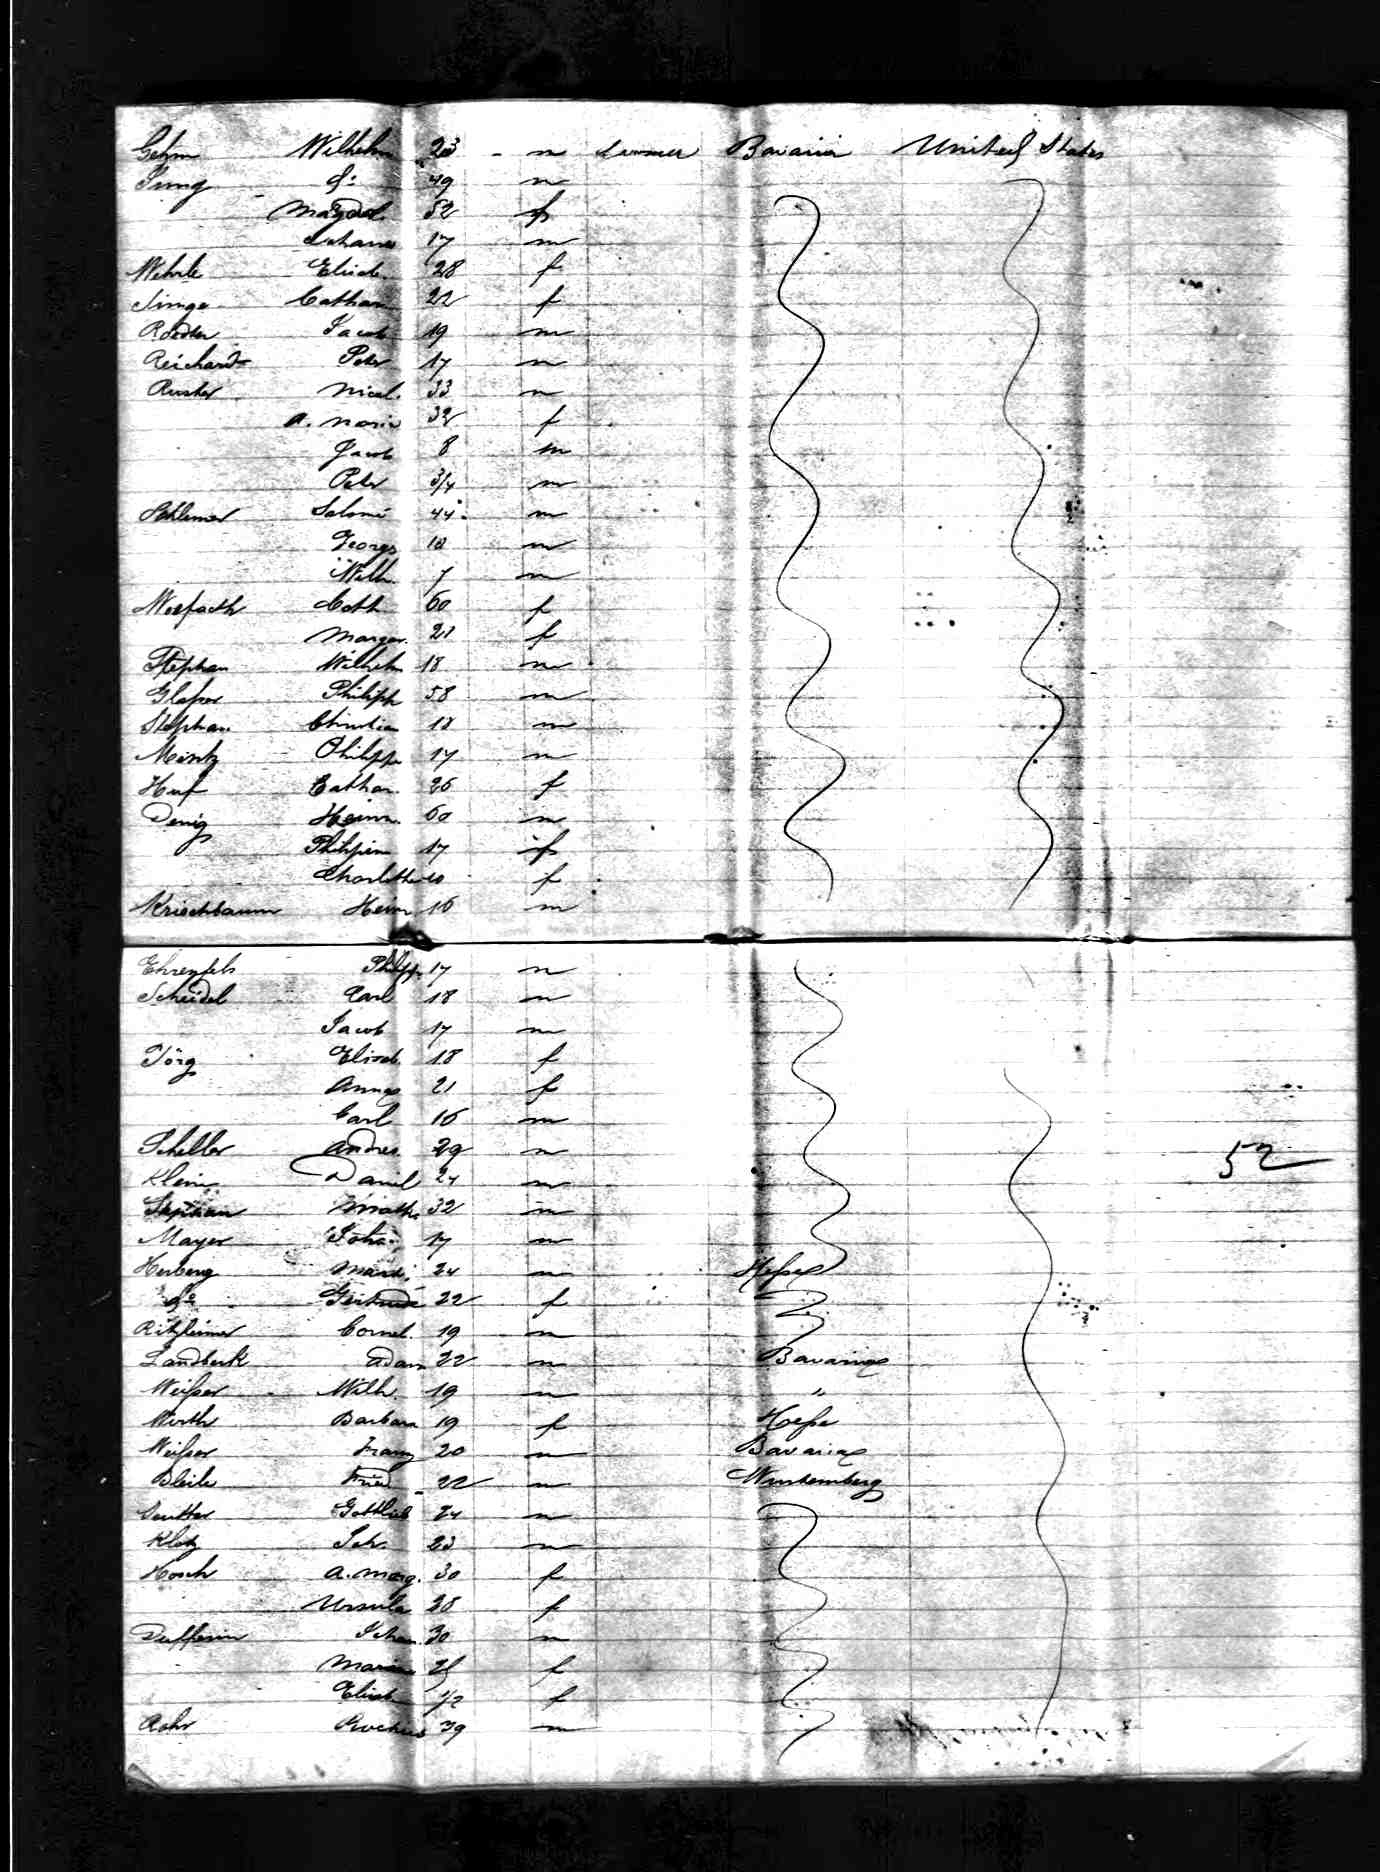 Gehm Wilhelm 23 m farmer Bavaria United States
Jung d: 49 m
Magdal. 52 f
Johann 17 m
Wehrle Elisab. 28 f
Cathar. 22 f
Roeder Jacob 19 m
Reichardt Peter 17 m
Nicol. 33 m
A. Maria 32 f
Jacob 8 m
Peter 3/4 m
Salome 44 m
Georg 10 m
Wilh. 7 m
Cath 60 f
Margar. 21 f
Stephan Wilhelm 18 m
Glaser Philipp 58 m
Stephan Christian 18 m
Mentz Philipp 17 m
Huf Cathar. 26 f
Denig Heinr. 60 m
Philipin 17 f
Charlotte 20 f
Kriechbaum Heinr 16 m
Ehrenfels Philipp 17 m
Scheidel Carl 18 m
Jacob 17 m
Jörg Elisab. 18 f
Anna 21 f
Carl 16 m
Scheller Andres 29 m 52
Klein Daniel 24 m
Stephan Math. 32 m
Mayer Johan 17 m
Herberg 24 m Hesse
do Gertrude 22 f
Cornel. 19 m
Adam 22 m Bavaria
Weisser Wilh. 19 m "
Wirth Barbara 19 f Hesse
Weisser Franz 20 m Bavaria
Bleile Fried 22 m Wurtemberg
Gottlieb 24 m
Klotz Joh. 23 m
Hosch A. Marg. 30 f
Ursula 28 f
Johan. 30 m
Maria f
Elisab. 1/2 f
Rohr Rochus 39 m